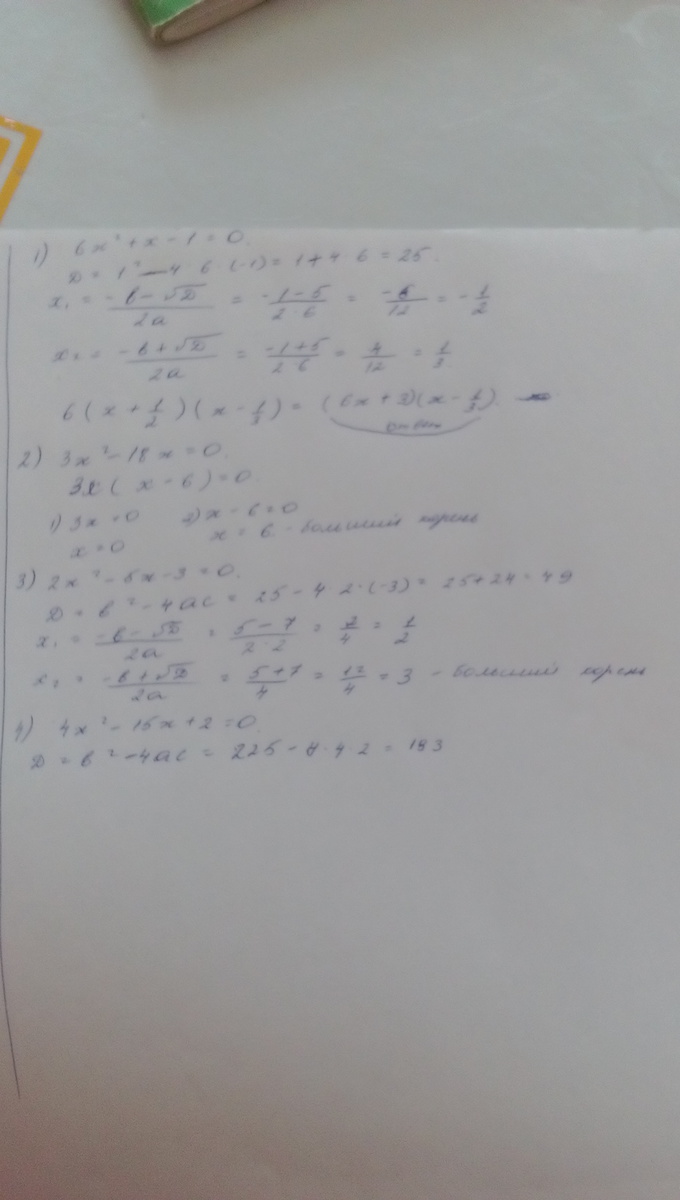 1) 6x² + x - 1 = 0.
D = 1² - 4 · 6 · (-1) = 1 + 4 · 6 = 25.
x₁ = (-b - √D)/2a = (-1-5)/(2·6) = -6/12 = -1/2
x₂ = (-b + √D)/2a = (-1+5)/(2·6) = 4/12 = 1/3
6(x + 1/2)(x - 1/3) = (6x + 3)(x - 1/3).
ответ
2) 3x² - 18x = 0.
3x(x - 6) = 0.
1) 3x = 0 2) x - 6 = 0
x = 0 x = 6 - больший корень
3) 2x² - 5x - 3 = 0.
D = b² - 4ac = 25 - 4 · 2 · (-3) = 25 + 24 = 49
x₁ = (-b - √D)/2a = (5-7)/(2·2) = 2/4 = 1/2
x₂ = (-b + √D)/2a = (5+7)/4 = 12/4 = 3 - больший корень
4) 4x² - 15x + 2 = 0.
D = b² - 4ac = 225 - 4 · 4 · 2 = 193